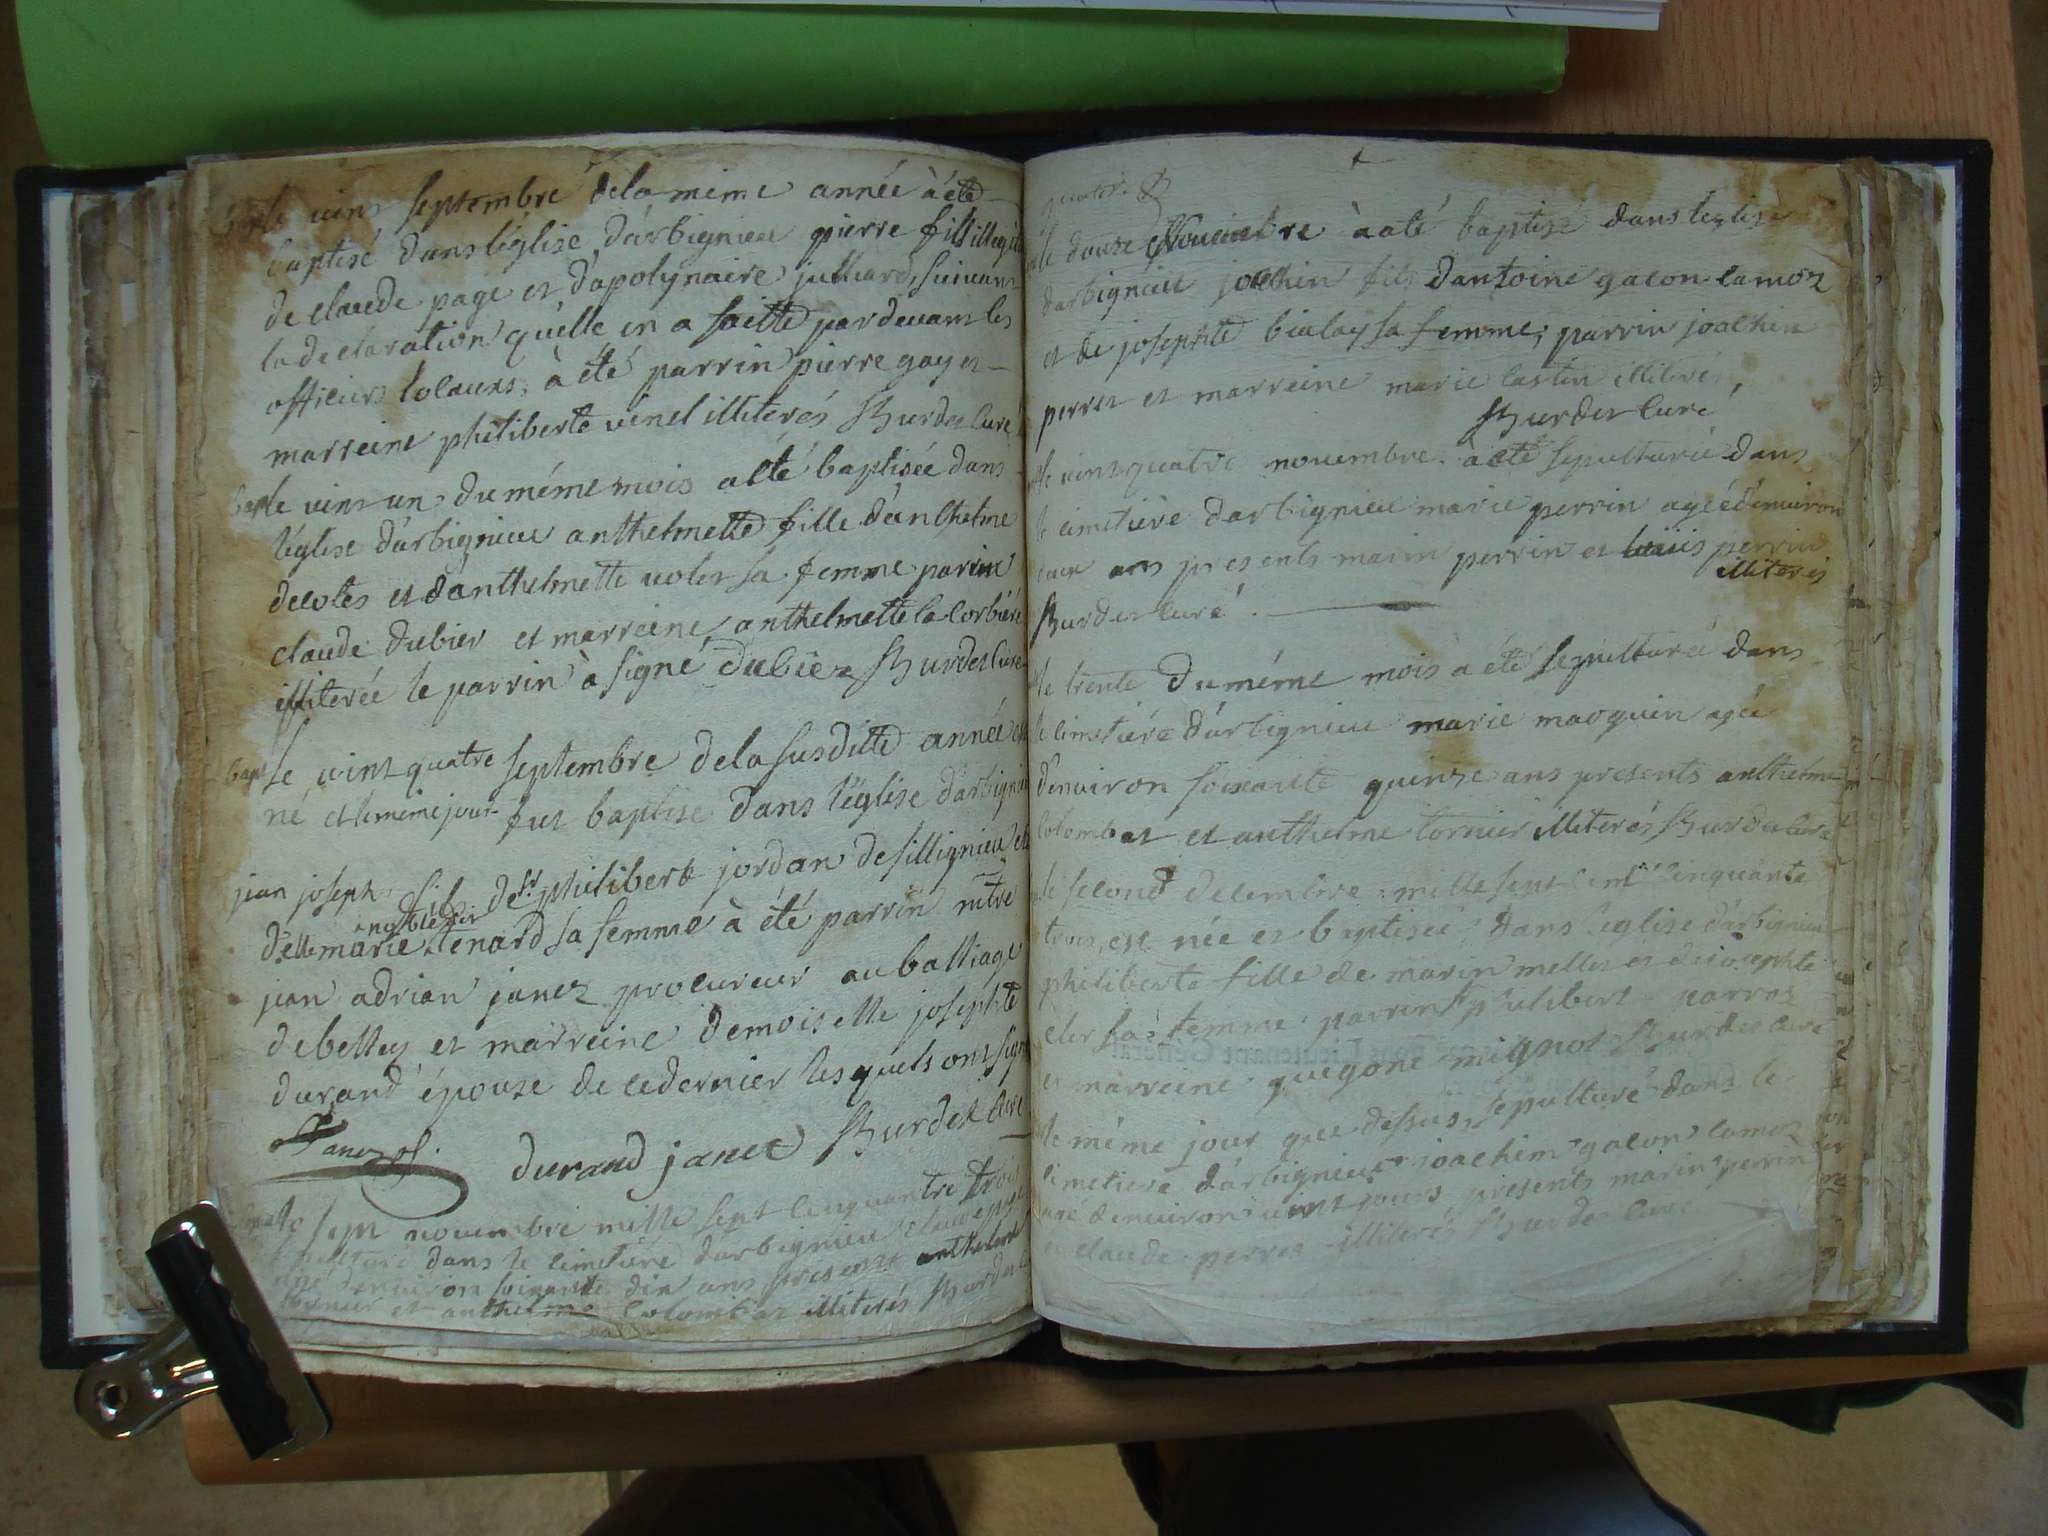 le vint septembre de la meme année à été
baptisé dans l'église d'arbignieu pierre fils
de claude page et d'apolynaire julliard, suivant
la declaration qu'elle en a faitte pardevant les
officiers locaux, à été parrin pierre gay et
marreine philiberte vinel illiterés Burdet curé
bapt le vint un du méme mois a été baptisée dans
l'église d'arbignieu anthelmette fille d'anthelme
decotes et d'anthelmette volet sa femme parrin
claude dubier et marreine anthelmette la corbiére
illiterée le parrin à signé dubiez Burdet curé
bapt Le vint quatre septembre de la susditte année est
né et le meme jour fut baptisé dans l'église d'arbignieu
jean joseph fils de sr philibert jordan de sillignieu et
d'elle marie tenard sa femme à été parrin mtre
jean adrian janez procureur au balliage
de belley et marreine demoiselle josephte
durand épouse de ce dernier lesquels ont signé
Janez durand janet Burdet curé
le sept novembre mille sept cinquante trois
dans le cimetiére d'arbignieu
agé d'environ soixante dix ans presents anthelme
tornier et anthelme colombat illiterés Burdet
le douze Novembre à été baptisé dans l'eglise
d'arbignieu joachin fils d'antoine gacon camoz
et de josephte bialay sa femme; parrin joachin
perret et marreine marie castin illiterés,
Burdet curé
le vint quatre novembre à été sépulturée dans
le cimetiére d'arbignieu marie perrin agée d'environ
ans presents marin perrin et perrin
illiterés
Burdet curé
le trente du méme mois a été sepulturée dans
le cimetiére d'arbignieu marie maoquin agée
d'environ soixante quinze ans presents anthelme
colombat et anthelme tornier illiterés Burdet curé
le second decembre mille sept cent cinquante
trois, est née et baptisée dans l'eglise d'arbignieu
philiberte fille de marin mellet et de josephte
cler sa femme parrin philibert parraz
et marreine guigone mignot Burdet curé
le méme jour que dessus, sepulturé dans le
cimetiere d'arbignieu joachim gacon camoz
agé d'environ vint jours presents marin perrin
et claude perret illiterés Burdet curé